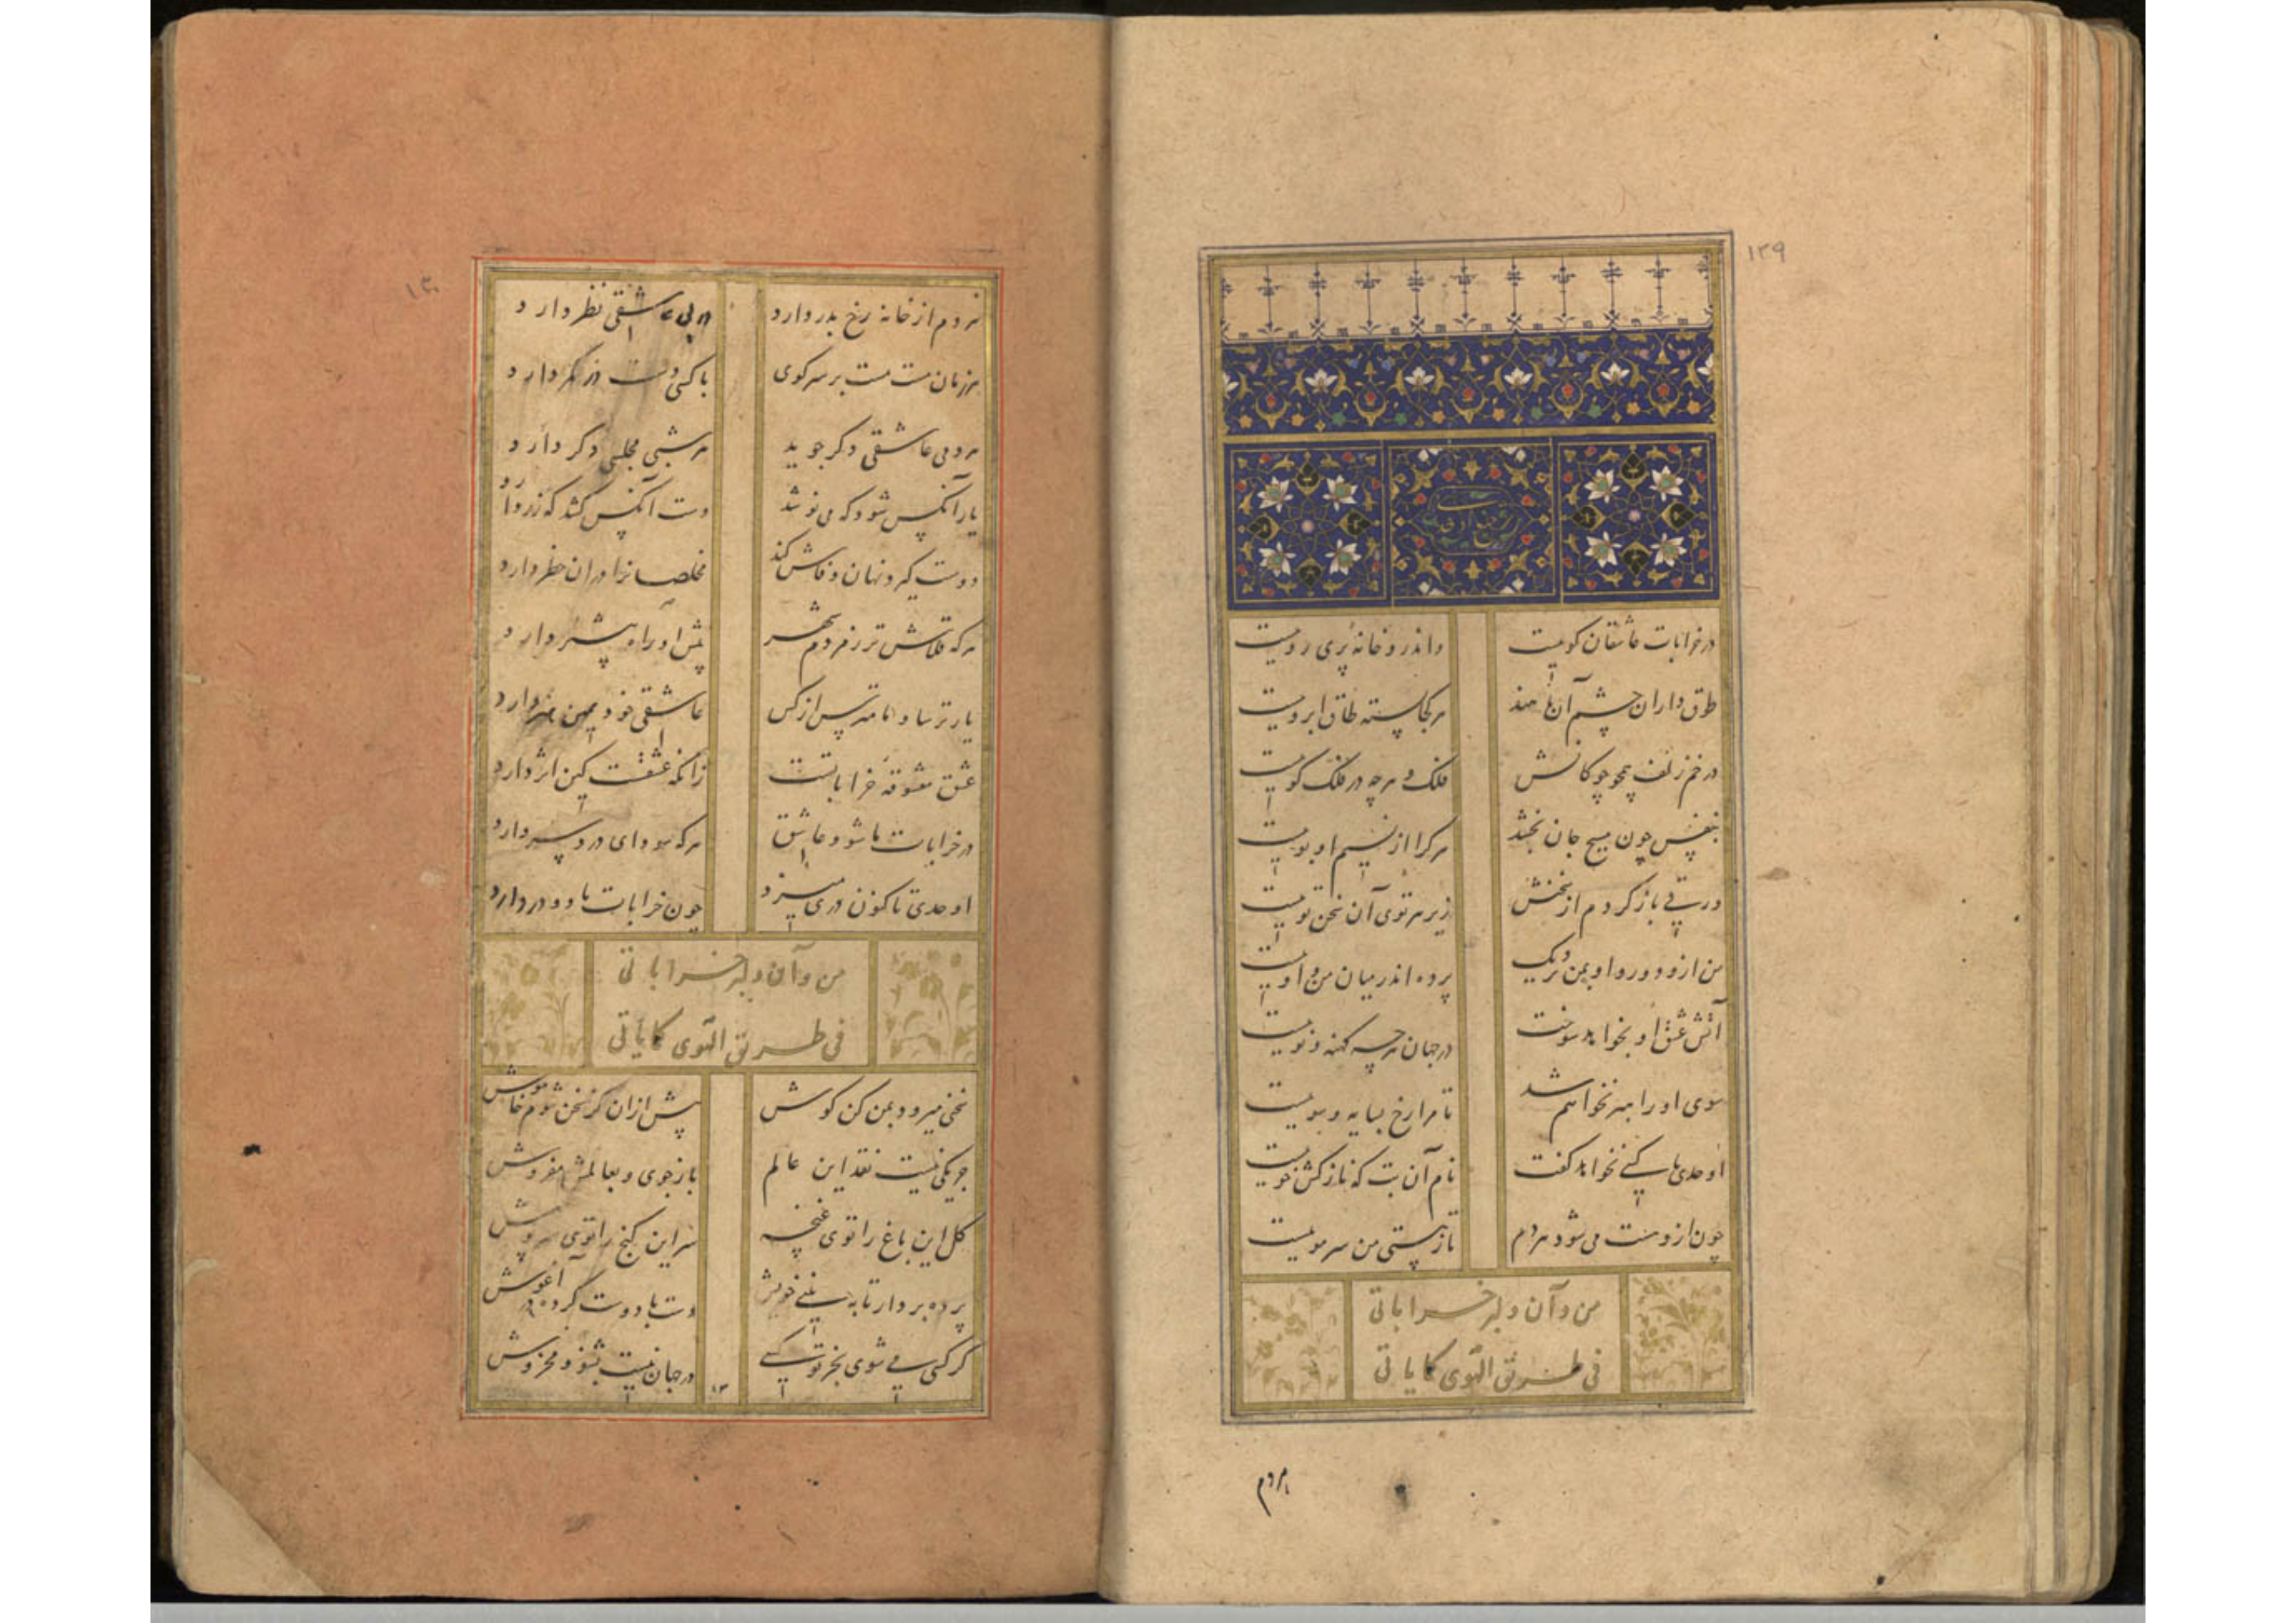 ۱۲۹
در خرابات عاشقان کوییست
واندرو خانهٔ پری روییست
طوق داران چشم آن ماهند
هر کجا بسته طاق ابروییست
در خم زلف همچو چوکانش
فلک و هر چه در فلک کوییست
بنفس چون مسیح جان بخشد
هر کرا از نسیم او بوییست
ورقی باز کردم از سخنش
زیر هر توی آن سخن توییست
من ازو دور و او بمن نزدیک
پرده اندر میان من و اوییست
آتش عشق او بخواهد سوخت
در جهان هرچه کهنه و نوییست
سوی او راهبر نخواهم شد
تا مرا رخ بسایه و سوییست
اوحدی با کسی نخواهد کفت
نام آن بت که نازکش خوییست
چون ازو مست می شود هر دم
تا ز هستی من سر موییست
من و آن دلبر خراباتی
فی طریق الهوی کما یاتی
هر دم
۱۳۰
هر دم از خانه رخ بدر دارد
در پی عاشقی نظر دارد
هر زمان مست مست بر سر کوی
با کسی دست در کمر دارد
هر دمی عاشقی دکر جوید
هر شبی مجلسی دکر دارد
یار آنکس شود که می نوشد
دست آنکس کشد که زر دارد
دوست کیرد نهان و فاش کند
مخلصانرا در ان خطر دارد
هر که قلاش تر ز مردم شهر
پیش او راه بیشتر دارد
یار ترسا و ما مترس از کس
عاشقی خود همین هنر دارد
عشق معشوقهٔ خراباتست
زانکه عشقست کین اثر دارد
در خرابات ما شود عاشق
هر که سودای درد سر دارد
اوحدی تا کنون دری میزد
چون خرابات ما دو در دارد
من و آن دلبر خراباتی
فی طریق الهوی کما یاتی
سخنی میرود بمن کن کوش
پیش ازان کز سخن شوم خاموش
جو یکی نیست نقد این عالم
باز جوی و بعالمش مفروش
کل این باغ را توی غنچه
سر این کنج را توی سرپوش
پرده بردار تا به بینی خوش
دست با دوست کرده در آغوش
کر کسی می شوی بجز تو کسی
در جهان نیست بشنو و مخروش